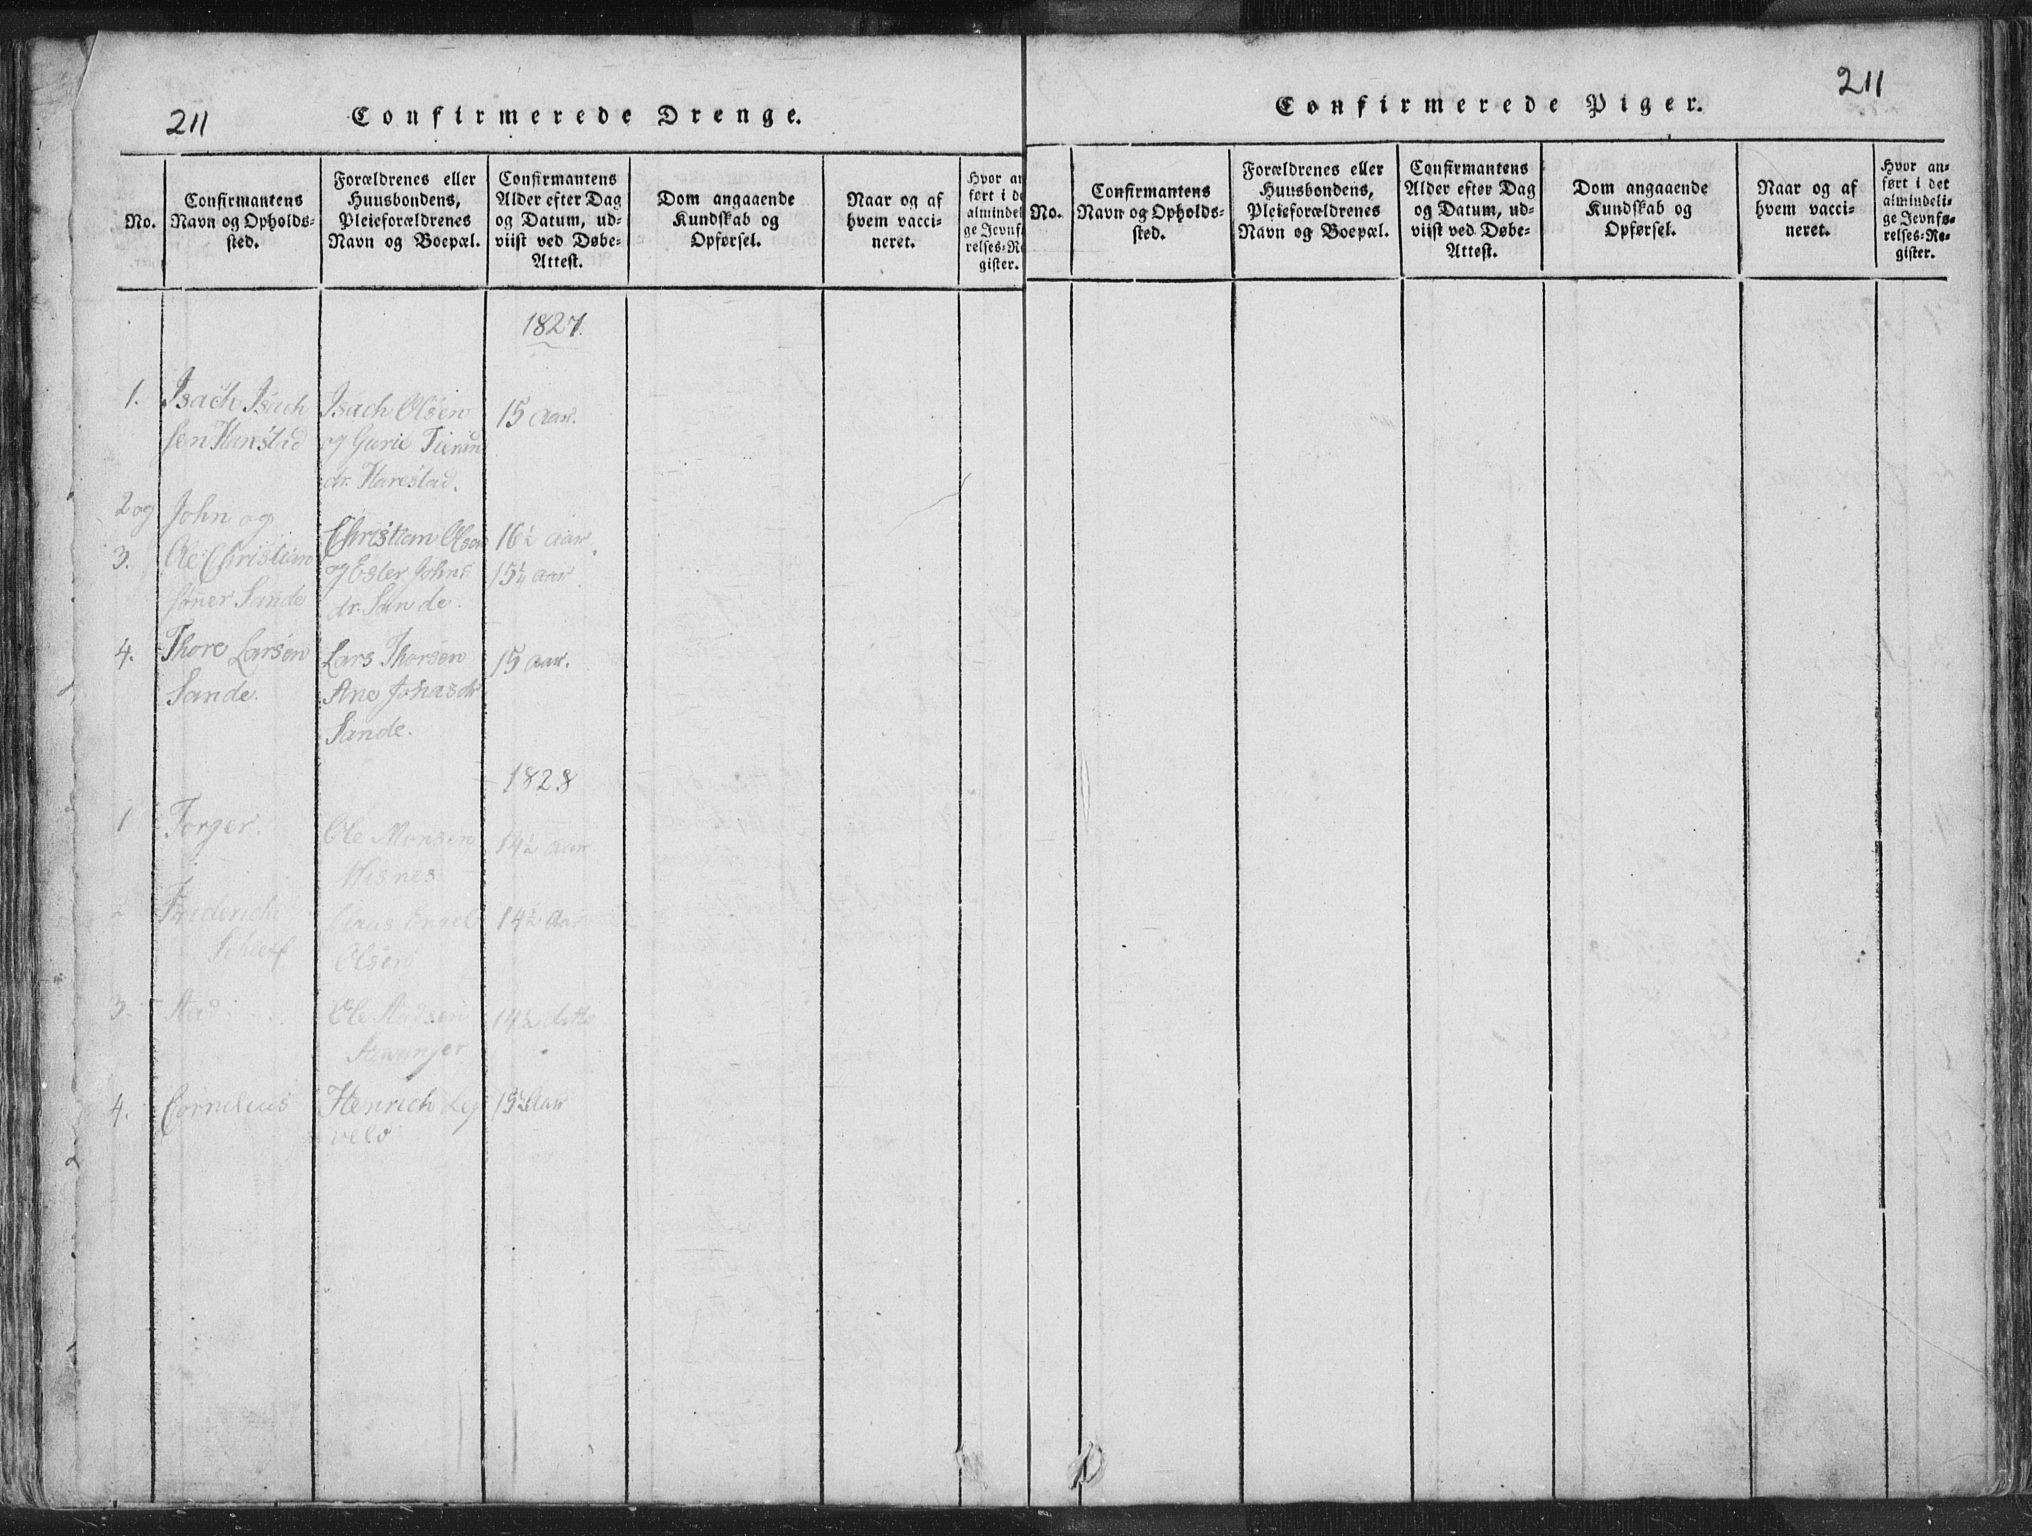 211
Confirmerede Drenge.
No.
Confirmantens
Navn og Opholds-
sted.
Forældrenes eller
Huusbondens,
Pleieforældrenes
Navn og Boepæl.
Confirmantens
Alder efter Dag
og Datum, ud-
viist ved Døbe-
Attest.
Dom angaaende
Kundskab og
Opførsel.
Naar og af
hvem vacci-
neret.
Hvor an
ført i de
almindel
ge Jevnf
relses-Re
gister.
1827.
1.
Isach Isach
sen Harestad
Isach Olsen
og Gurie
dr. Harestad.
15 Aar.
2 og
3.
John og
Ole Christian
sønner Sande
Christian Olsen
og Ester Johns
dr. Sande.
16½ Aar.
15¼ Aar
4.
Thore Larsen
Sande.
Lars Thorsen
Ane Jonasdr
Sande.
15 Aar.
1828
1
Torger.
Ole Monsen
Hisnes
14½ Aar.
2
Friderich
Claus Engel
Olsen
14½ Aar
3.
Ole
14½ ditto
4.
Cornelius
Henrich
15½ Aar
211
Confirmerede Piger.
No.
Confirmantens
Navn og Opholds-
sted.
Forældrenes eller
Huusbondens,
Pleieforældrenes
Navn og Boepæl.
Confirmantens
Alder efter Dag
og Datum, ud-
viist ved Døbe-
Attest.
Dom angaaende
Kundskab og
Opførsel.
Naar og af
hvem vacci-
neret.
Hvor an-
ført i det
almindeli-
ge Jevnfø-
relses-Re-
gister.